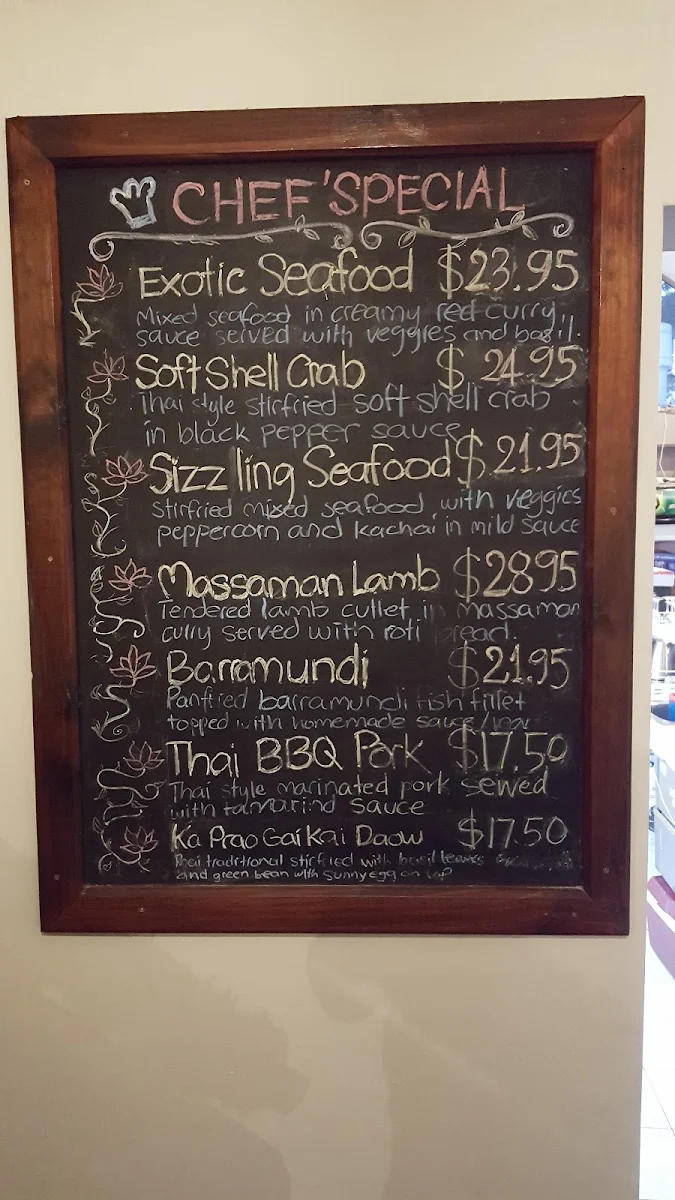 CHEF'SPECIAL
Exotic Seafood $23.95
Mixed seafood in creamy red curry,
sauce served with veggies and basil.
Soft Shell Crab $ 24.95
Thai style stirfried soft shell crab
in black pepper sauce
Sizzling Seafood $21.95
Stirfried mixed seafood with veggies
peppercorn and kachai in mild sauce
Massaman Lamb $28.95
Tendered lamb cutlet in massaman
curry served with roti bread.
Barramundi $21.95
Panfried barramundi fish fillet
topped with homemade sauce
Thai BBQ Pork $17.50
Thai style marinated pork served
with tamarind sauce
Ka Prao Gai Kai Daow $17.50
Thai traditional stirfried with basil leaves
and green bean with sunnyegg on top